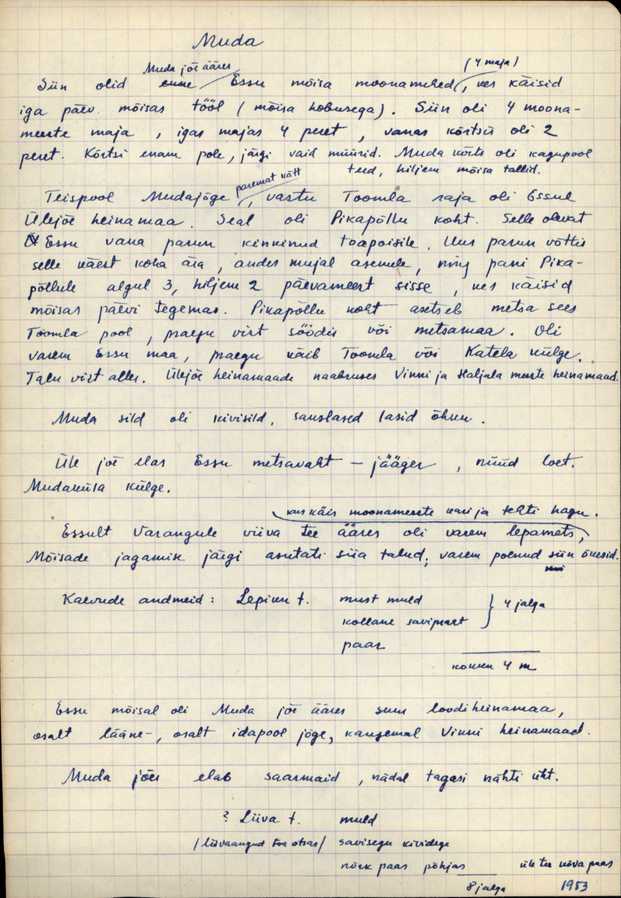 Muda
Muda jõe ääres (4 maja)
Siin olid enne Essu mõisa moonamehed, kes käisid
iga päev mõisas tööl (mõisa hobusega). Siin oli 4 moona-
meeste maja, igas majas 4 peret, vanas kõrtsis oli 2
peret. Kõrtsi enam pole, järgi vaid müürid. Muda kõrts oli kagupool
teed, hiljem mõisa tallid.
paremat kätt
Teispool Mudajõge, vastu Toomla raja oli Essul
Ülejõe heinamaa. Seal oli Pikapõllu koht. Selle olevat
Essu vana parun kinkinud toapoisile. Uus parun võttis
selle käest koha ära, andes mujal asemele, ning pani Pika-
põllule algul 3, hiljem 2 päevameest sisse, kes käisid
mõisas päevi tegemas. Pikapõllu koht asetseb metsa sees
Toomla pool, praegu vist söödis või metsamaa. Oli
varem Essu maa, praegu käib Toomla või Katela külge.
Talu vist alles. Ülejõe heinamaade naabruses Vinni ja Haljala meeste heinamaad.
Muda sild oli kivisild, sakslased lasid õhku.
Üle jõe elas Essu metsavaht – jääger, nüüd loet.
Mudaküla külge.
kus käis moonameeste kari ja tehti hagu.
Essult Varangule viiva tee ääres oli varem lepamets,
Mõisade jagamise järgi asutati siia talud, varem polnud siin õuesid.
Kaevude andmeid: Lepiku t. must muld
kollane savipart } 4 jalga
paas
kokku 4 m
Essu mõisal oli Muda jõe ääres suur loodiheinamaa,
osalt lääne-, osalt idapool jõge, kaugemal Vinni heinamaad.
Muda jões elab saarmaid, nädal tagasi nähti üht.
? Liiva t. muld
/liivaaugud otsas/ savisegu kividega
paas põhjas üle tee kõva paas
8 jalga 1953